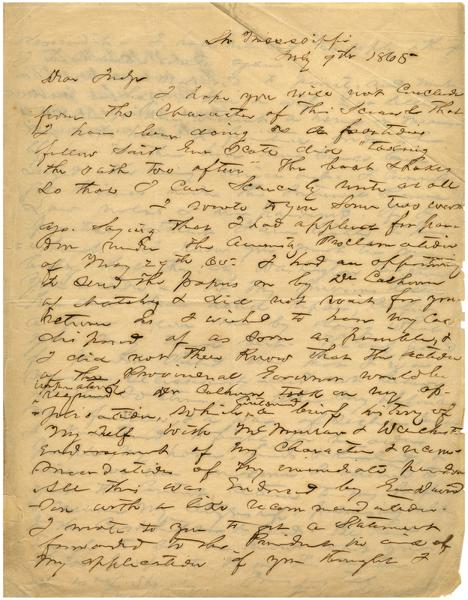 In Mississippi
July 9th 1865
Dear Judge
I hope you will not conclude
from the Character of this Scrawl that
I have been doing as a
fellow said did "taking
the oath too often" The boat shakes
so that I can scarcely write at all
I wrote to you some two weeks
ago saying that I had applied for par-
don under the Amnesty Proclamation
of May 29th 65. I had an opportunity
to send the papers on by Dr Calhoun
of Natchez & did not wait for your
return as I wished to have my case
disposed of as soon as possible, &
I did not then know that the action
of the Provincial Governor would be
required Dr Calhoun took on my ap-
plication, a brief history of
My self with &
Endorsement of my Character & recom-
mendation of my immediate pardon
All this was Endorsed by Genl
son with a like recommendation.
I wrote to you to get a Statement
forwarded to the President in aid of
my application if you thought I